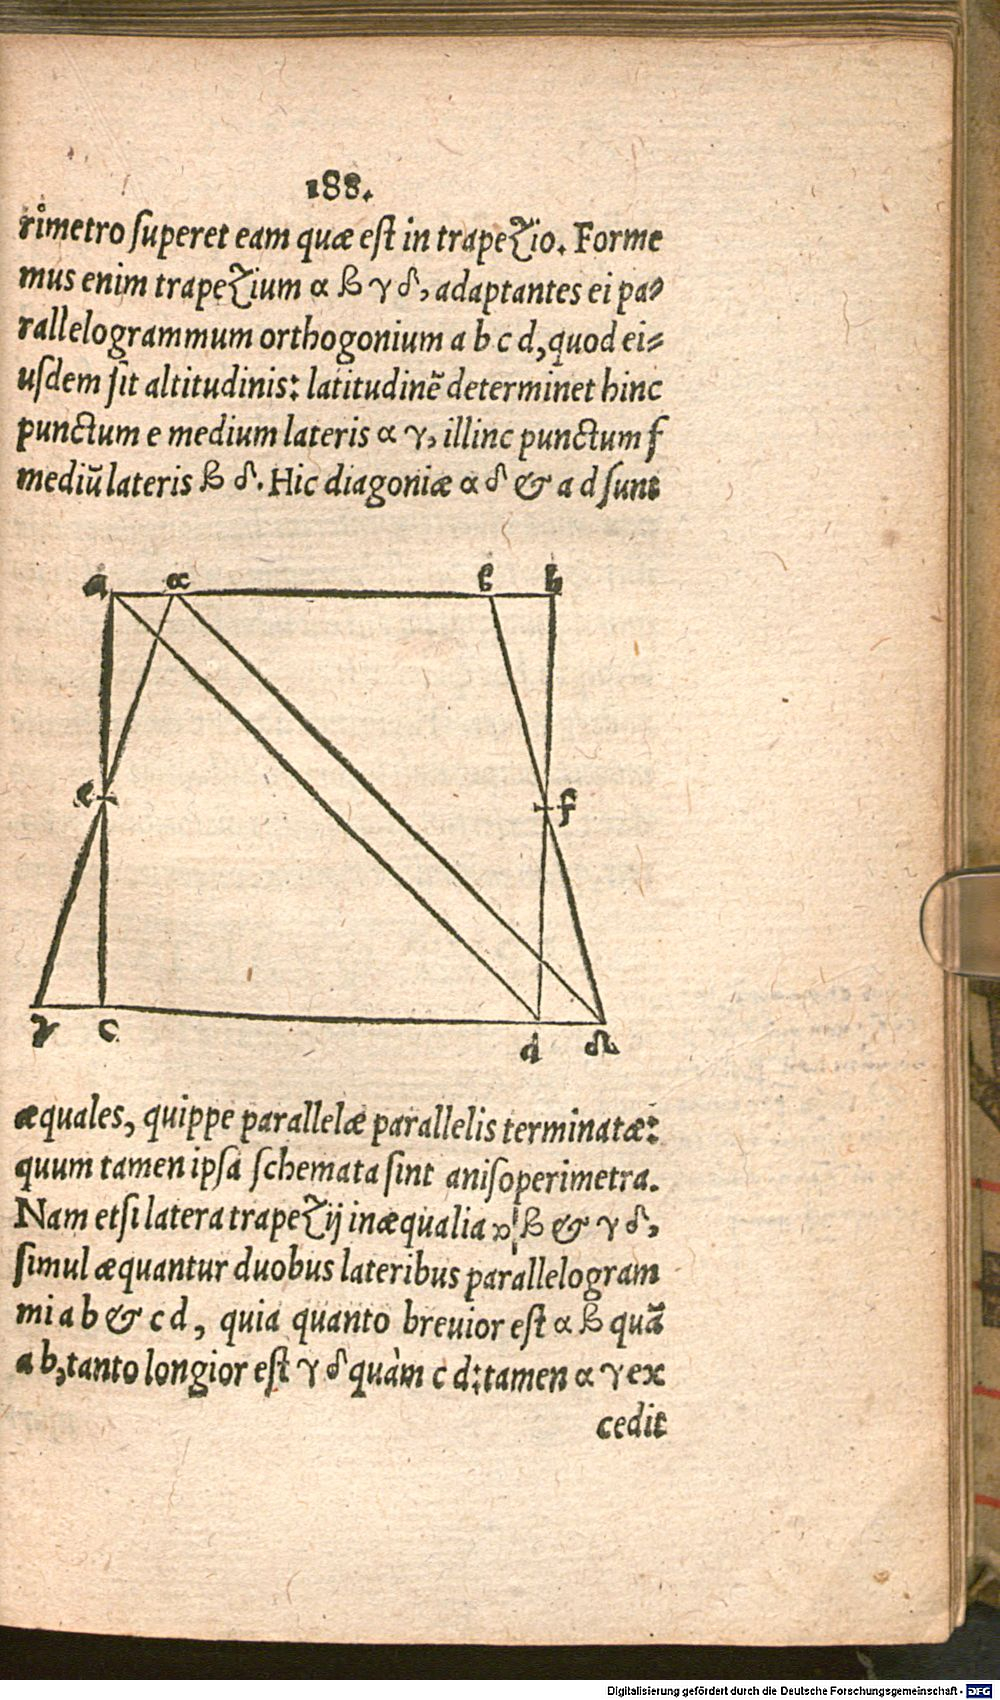 188.
rimetro superet eam quæ est in trapezio. Forme
mus enim trapezium α β γ δ, adaptantes ei pa-
rallelogrammum orthogonium a b c d, quod ei-
usdem sit altitudinis: latitudinē determinet hinc
punctum e medium lateris α γ, illinc punctum f
mediū lateris β δ. Hic diagoniæ α δ & a d sunt
a α β b
e f
γ c d δ
æquales, quippe parallelæ parallelis terminatæ:
quum tamen ipsa schemata sint anisoperimetra.
Nam etsi latera trapezij inæqualia α β & γ δ,
simul æquantur duobus lateribus parallelogram
mi a b & c d, quia quanto breuior est α β quā
a b, tanto longior est γ δ quàm c d: tamen α γ ex
cedit
Digitalisierung gefördert durch die Deutsche Forschungsgemeinschaft - DFG